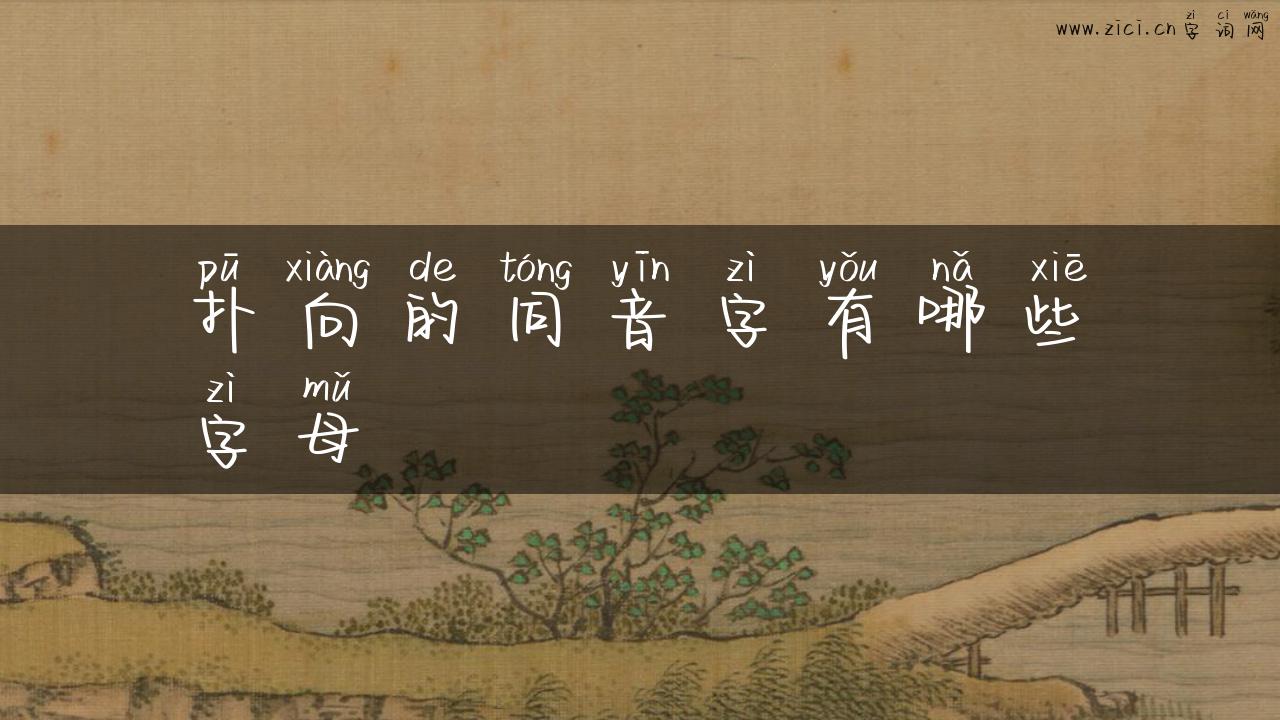 zì cí wǎng
www.zici.cn 字词网
pū xiàng de tóng yīn zì yǒu nǎ xiē
扑向的同音字有哪些
zì mǔ
字母